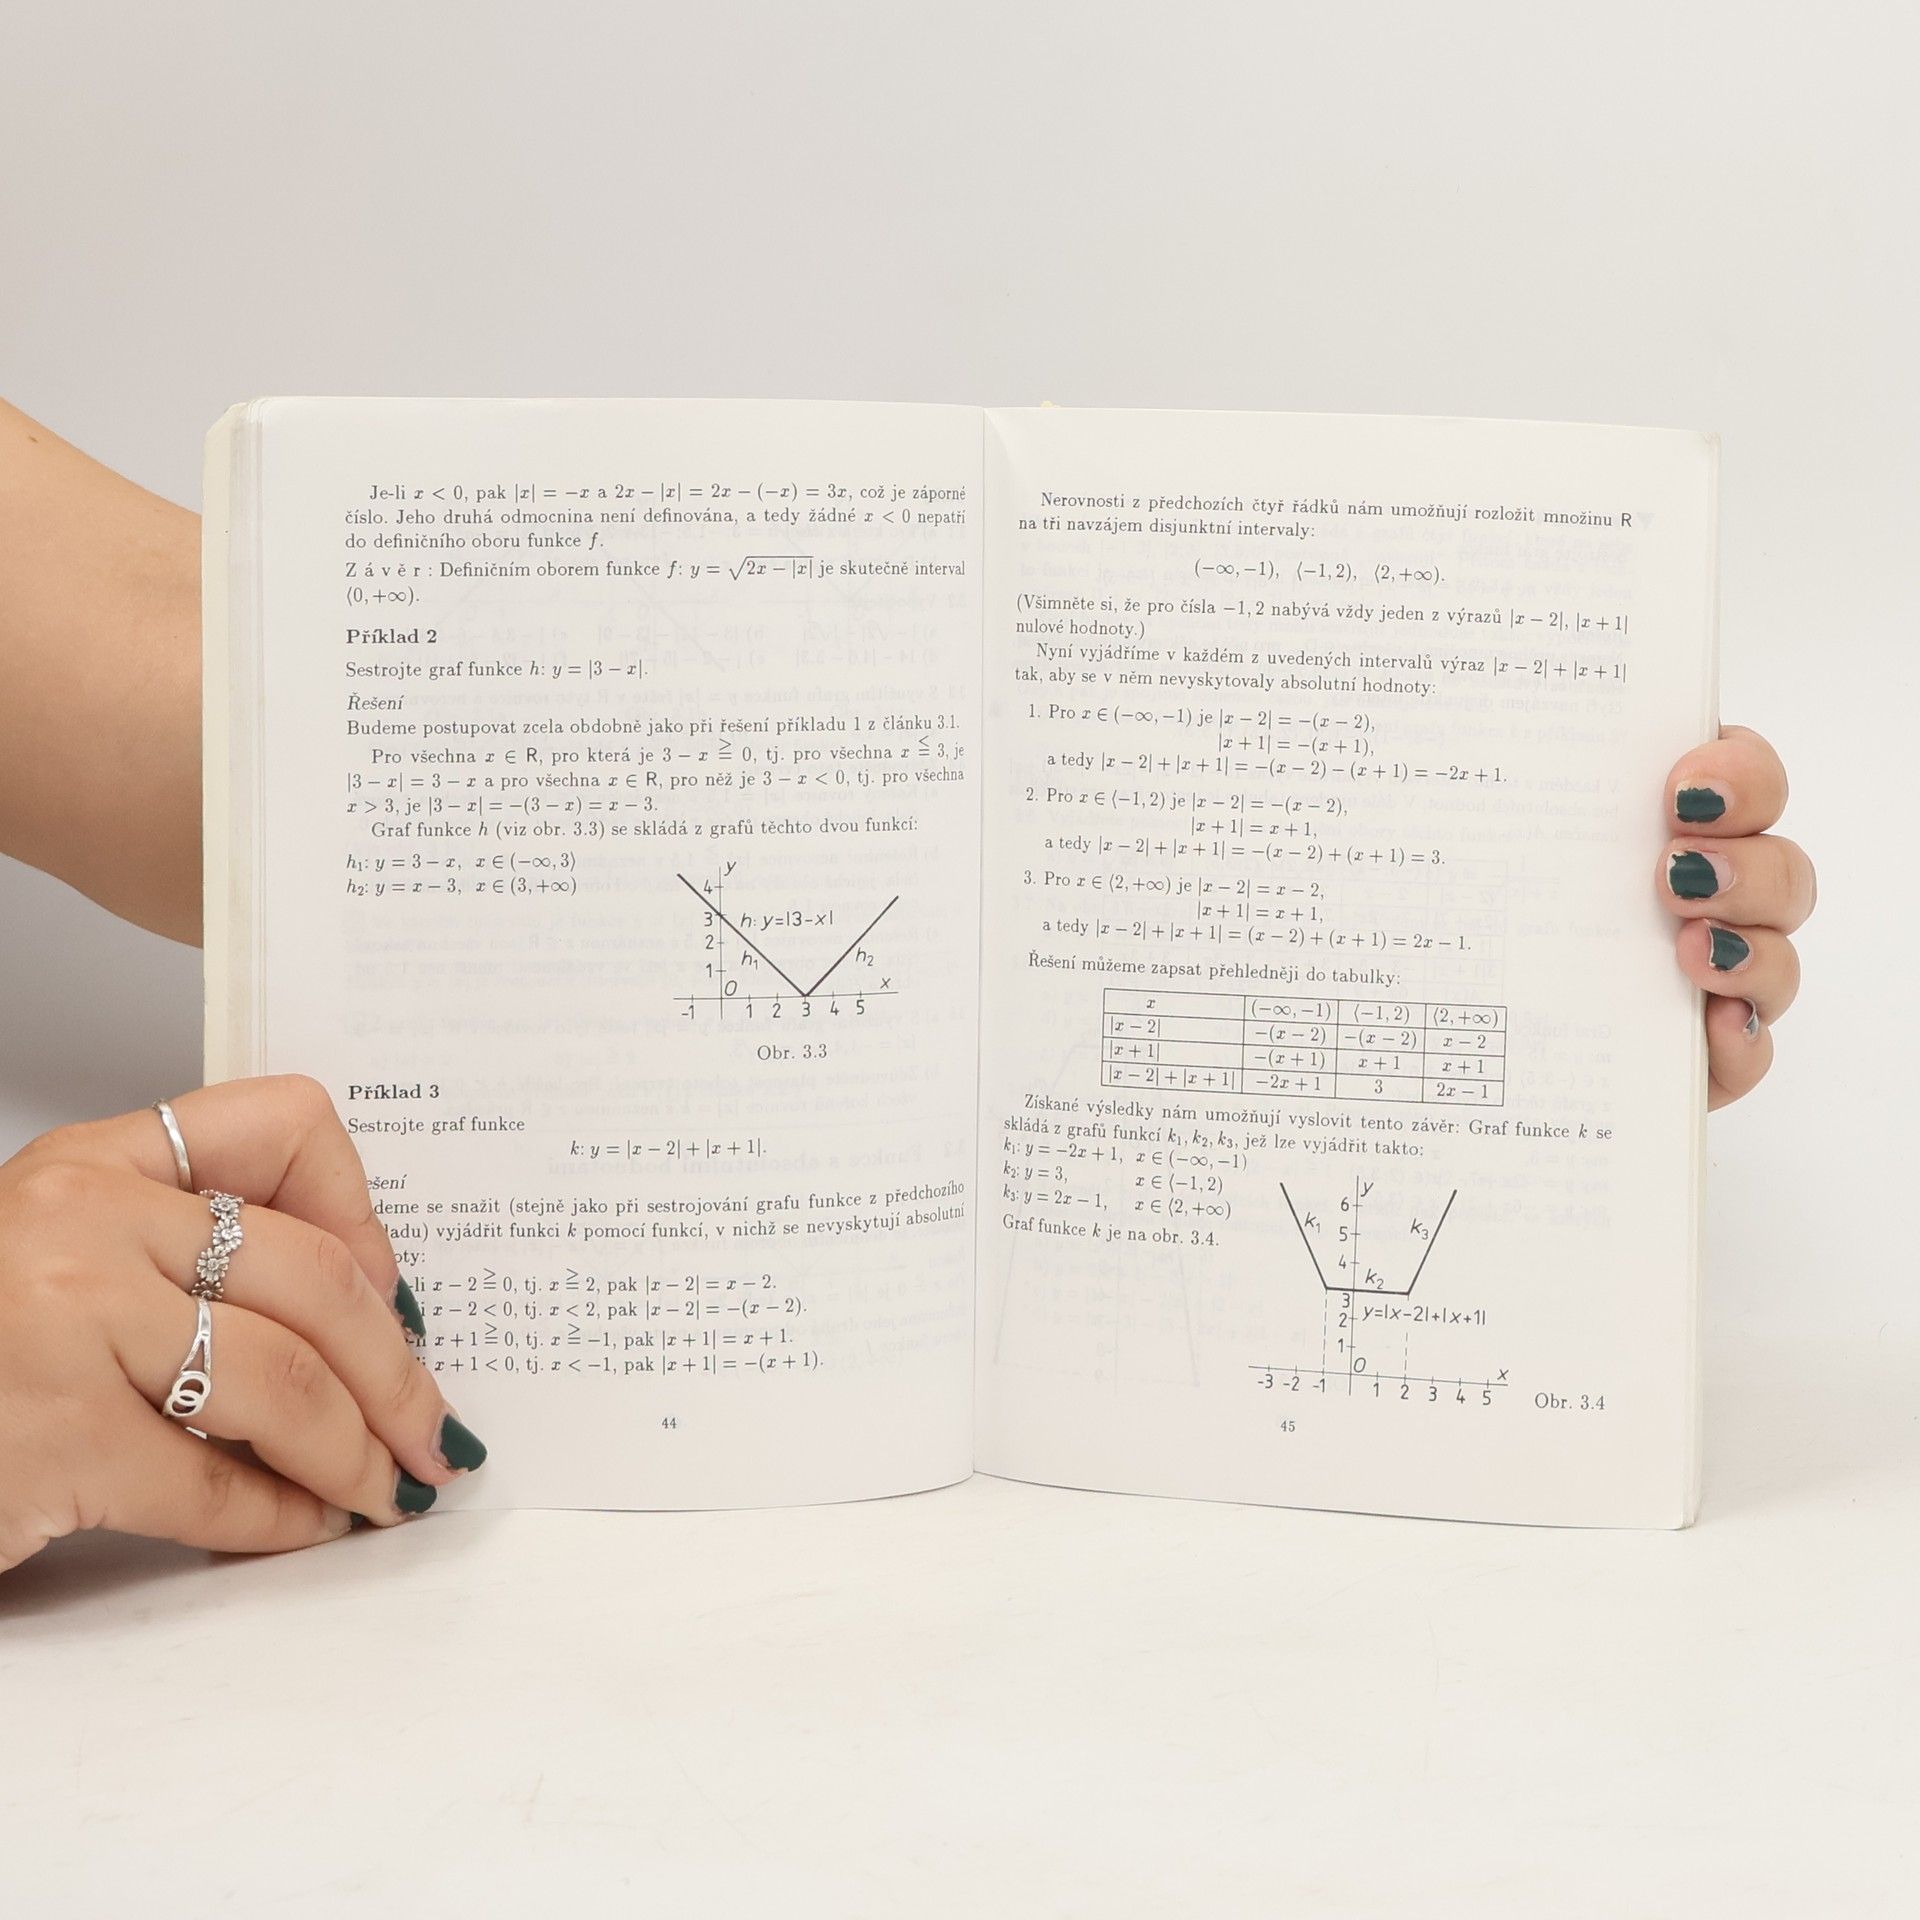 Je-li x < 0, pak |x| = −x a 2x − |x| = 2x − (−x) = 3x, což je záporné
číslo. Jeho druhá odmocnina není definována, a tedy žádné x < 0 nepatří
do definičního oboru funkce f.
Závěr: Definičním oborem funkce f: y = √(2x − |x|) je skutečně interval
⟨0, +∞).
Příklad 2
Sestrojte graf funkce h: y = |3 − x|.
Řešení
Budeme postupovat zcela obdobně jako při řešení příkladu 1 z článku 3.1.
Pro všechna x ∈ R, pro která je 3 − x ≧ 0, tj. pro všechna x ≦ 3, je
|3 − x| = 3 − x a pro všechna x ∈ R, pro něž je 3 − x < 0, tj. pro všechna
x > 3, je |3 − x| = −(3 − x) = x − 3.
Graf funkce h (viz obr. 3.3) se skládá z grafů těchto dvou funkcí:
h₁: y = 3 − x, x ∈ (−∞, 3⟩
h₂: y = x − 3, x ∈ (3, +∞)
y
4
3 h: y=|3−x|
2
h₁ h₂
1
O x
-1 1 2 3 4 5
Obr. 3.3
Příklad 3
Sestrojte graf funkce
k: y = |x − 2| + |x + 1|.
ešení
deme se snažit (stejně jako při sestrojování grafu funkce z předchozího
ladu) vyjádřit funkci k pomocí funkcí, v nichž se nevyskytují absolutní
oty:
-li x − 2 ≧ 0, tj. x ≧ 2, pak |x − 2| = x − 2.
i x − 2 < 0, tj. x < 2, pak |x − 2| = −(x − 2).
-li x + 1 ≧ 0, tj. x ≧ −1, pak |x + 1| = x + 1.
li x + 1 < 0, tj. x < −1, pak |x + 1| = −(x + 1).
44
Nerovnosti z předchozích čtyř řádků nám umožňují rozložit množinu R
na tři navzájem disjunktní intervaly:
(−∞, −1), ⟨−1, 2), ⟨2, +∞).
(Všimněte si, že pro čísla −1, 2 nabývá vždy jeden z výrazů |x − 2|, |x + 1|
nulové hodnoty.)
Nyní vyjádříme v každém z uvedených intervalů výraz |x − 2| + |x + 1|
tak, aby se v něm nevyskytovaly absolutní hodnoty:
1. Pro x ∈ (−∞, −1) je |x − 2| = −(x − 2),
|x + 1| = −(x + 1),
a tedy |x − 2| + |x + 1| = −(x − 2) − (x + 1) = −2x + 1.
2. Pro x ∈ ⟨−1, 2) je |x − 2| = −(x − 2),
|x + 1| = x + 1,
a tedy |x − 2| + |x + 1| = −(x − 2) + (x + 1) = 3.
3. Pro x ∈ ⟨2, +∞) je |x − 2| = x − 2,
|x + 1| = x + 1,
a tedy |x − 2| + |x + 1| = (x − 2) + (x + 1) = 2x − 1.
Řešení můžeme zapsat přehledněji do tabulky:
x (−∞, −1) ⟨−1, 2) ⟨2, +∞)
|x − 2| −(x − 2) −(x − 2) x − 2
|x + 1| −(x + 1) x + 1 x + 1
|x − 2| + |x + 1| −2x + 1 3 2x − 1
Získané výsledky nám umožňují vyslovit tento závěr: Graf funkce k se
skládá z grafů funkcí k₁, k₂, k₃, jež lze vyjádřit takto:
k₁: y = −2x + 1, x ∈ (−∞, −1)
k₂: y = 3, x ∈ ⟨−1, 2)
k₃: y = 2x − 1, x ∈ ⟨2, +∞)
Graf funkce k je na obr. 3.4.
y
6
k₁ k₃
5
4
k₂
3
2 y=|x−2|+|x+1|
1
O x
-3 -2 -1 1 2 3 4 5
Obr. 3.4
45